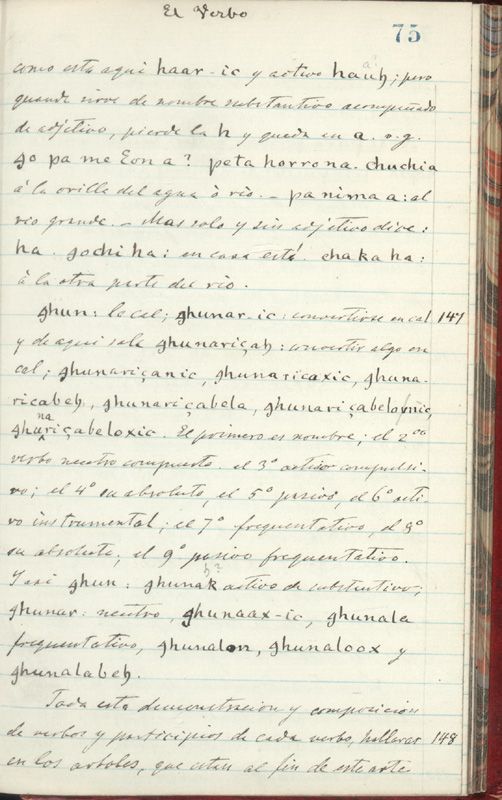 El Verbo
75
como esta aqui haar-ic y activo haah; pero
quando sirve de nombre substantivo acompañado
de adjetivo, pierde la h y queda en a. v.g.
go pa me Eon a? peta horrona. chuchia
á la orilla del agua ò rio. - pa nimaa: al
rio grande. - Mas solo y sin adjetivo dice:
ha. gochi ha: en casa está. chaka ha:
à la otra parte del rio.
ghun: la cal; ghunar-ic: convertirse en cal 147
y de aqui sale ghunariçah: convertir algo en
cal; ghunariçanic, ghunaricaxic, ghuna-
ricabeh, ghunariçabela, ghunariçabelonic,
ghunariçabeloxic. El primero es nombre; el 2º
verbo neutro compuesto. el 3º activo compulsi-
vo; el 4º su absoluto, el 5º pasivo, el 6º acti-
vo instrumental; el 7º frequentativo, el 8º
su absoluto; el 9º pasivo frequentativo.
Y asi ghun: ghunak activo de substantivo;
h?
ghunar: neutro, ghunaax-ic, ghunala
frequentativo, ghunalon, ghunaloox y
ghunalabeh.
Toda esta demonstracion y composicion
de verbos y participios de cada verbo, hallaras 148
en los arboles, que estan al fin de este arte